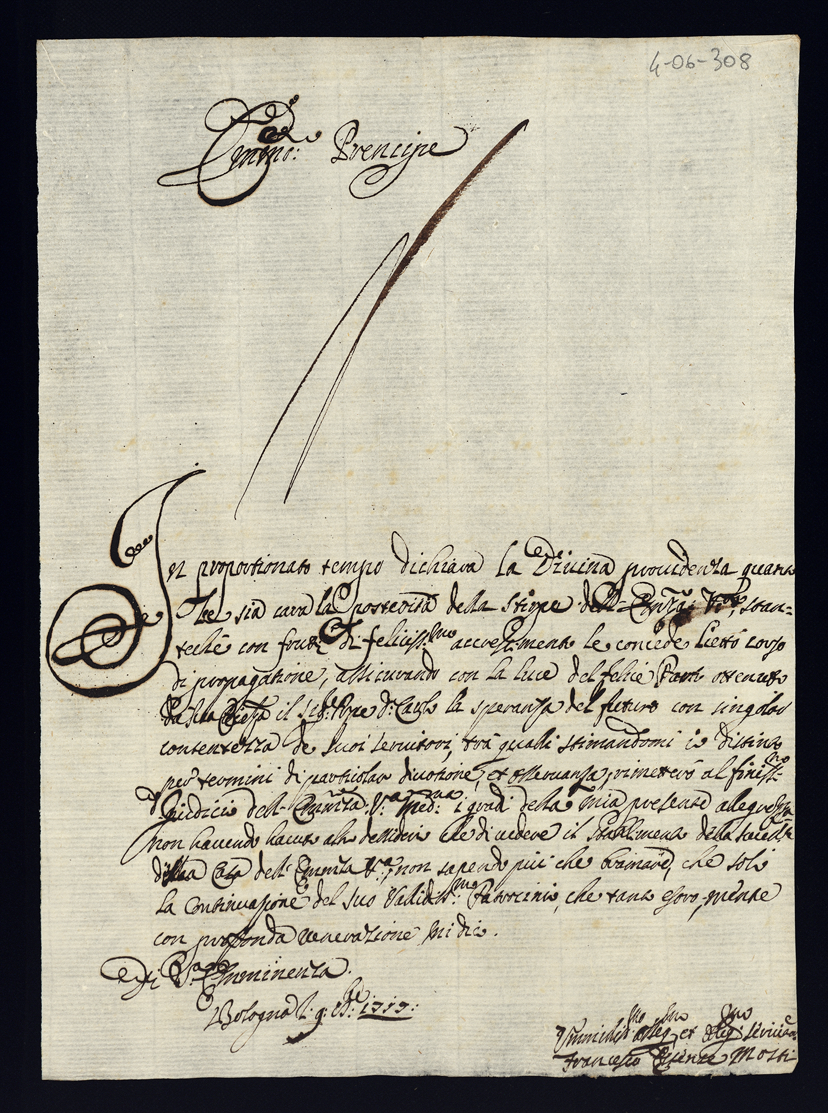 4-06-308
Em̃mo: Prencipe
In proportionato tempo dichiara la Divina providenza quanto
le sia cara la posterità della Stirpe dell'Emza Vra, stan-
teché con frutto di feliciss:mo accrescimento le concede lieto corso
di propagatione, assicurando con la luce del felice Parto ottenuto
il Sigr. Pnpe Dn Carlo la speranza del futuro con singolar
contentezza de suoi servitori, trà quali stimandomi io distinto
per termini di particolar divotione, et osservanza
giudicio dell'Emza Va Med:ma i gradi della mia presente allegrezza
non havendo havuto altro desiderio che di vedere il stabilimento della
Casa dell'Emza Va, non sapendo più che bramare, che solo
la continuazione del suo Validiss:mo Patrocinio, che tanto esoro, mentre
con profonda venerazione mi dico.
Di Va Emminenza
Bologna li 9 1717:
Vmmiliss:mo et Obblig:mo
Francesco Estense Mosti